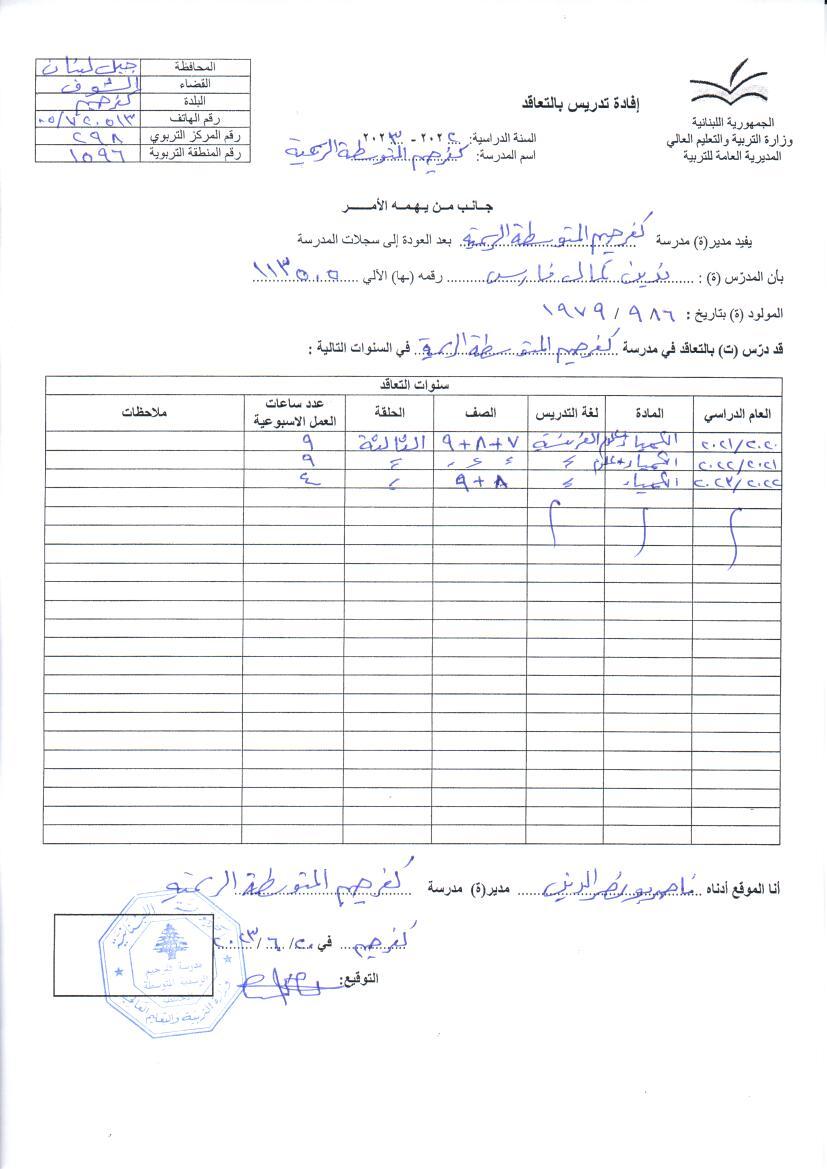 الجمهورية اللبنانية
وزارة التربية والتعليم العالي
المديرية العامة للتربية
إفادة تدريس بالتعاقد
السنة الدراسية: ٢٠٢٢ - ٢٠٢٣
اسم المدرسة: كفرحيم المتوسطة الرسمية
المحافظة جبل لبنان
القضاء الشوف
البلدة كفرحيم
رقم الهاتف ٠٥/٧٢٠٥١٣
رقم المركز التربوي ٢٩٨
رقم المنطقة التربوية ١٥٩٦
جانب من يهمه الأمر
يفيد مدير(ة) مدرسة كفرحيم المتوسطة الرسمية بعد العودة إلى سجلات المدرسة
بأن المدرّس (ة) : كمال فارس رقمه (ـها) الآلي
المولود (ة) بتاريخ : ١٩٧٩ /
قد درّس (ت) بالتعاقد في مدرسة كفرحيم المتوسطة الرسمية في السنوات التالية :
سنوات التعاقد
العام الدراسي المادة لغة التدريس الصف الحلقة عدد ساعات العمل الاسبوعية ملاحظات
٢٠٢١/٢٠٢٠ الكيمياء+علوم الفرنسية ٧+٨+٩ الثالثة ٩
٢٠٢٢/٢٠٢١ الكيمياء+علوم = = = = ٩
٢٠٢٣/٢٠٢٢ الكيمياء = ٨+٩ = ٤
أنا الموقع أدناه ناصر نصر الدين مدير(ة) مدرسة كفرحيم المتوسطة الرسمية
كفرحيم في ٢٠/٦/٢٠٢٣
التوقيع:
الجمهورية اللبنانية
مدرسة كفرحيم
الرسمية المتوسطة
وزارة التربية والتعليم العالي